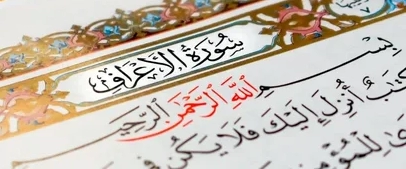 سُورَةُ الْأَعْرَافِ
بِسْمِ اللَّهِ الرَّحْمَٰنِ الرَّحِيمِ
كِتَٰبٌ أُنزِلَ إِلَيْكَ فَلَا يَكُن فِى
لِلْمُؤْمِنِ